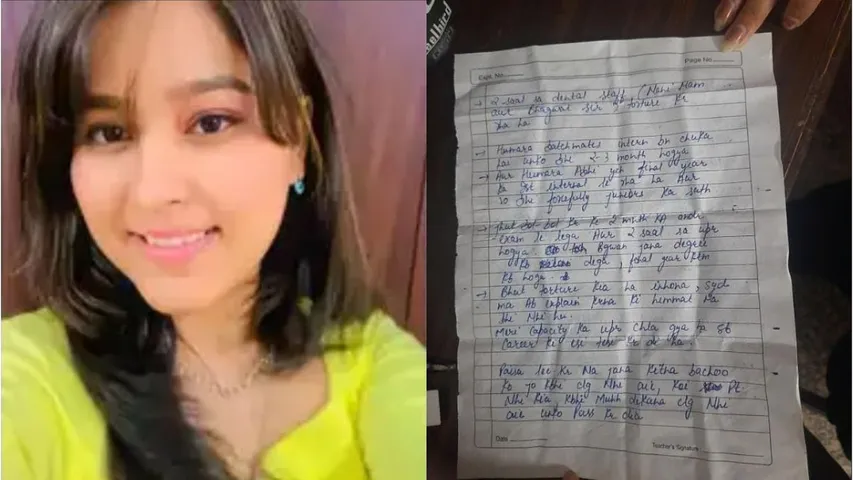 albird
Exp. No.
Page No.
→ 2 saal sa dental staff (Nani Mam
aur Bhagwat Sir torture kr
rha ha
→ Humara batchmates intern bn chuka
hai unko bhi 2-3 month hogya
→ Aur Humara Abhi yeh final year
ka 1st internal le rha ha Aur
vo bhi forcefully juniors ka sath
→ jhut bol-bol kr ke 2 month ka andr
Exam le lega Aur 2 saal sa upr
hogya Bgwan jana degree
kb dega, final year Exm
kb hoga.
→ Bhut torture kia ha inhona, Such
ma Ab explain krna ki himmat na
he Nhi hu.
Meri Capacity ka upr chla gya ha sb
Career ki esi tesi kr di ha.
Paisa lee kr Na jana kitna bachoo
ko jo kbhi clg Nhi aie, koi Pt.
Nhi kia, kbhi Muh dikana clg Nhi
aie unko Pass kr dia
Date
Teacher's Signature